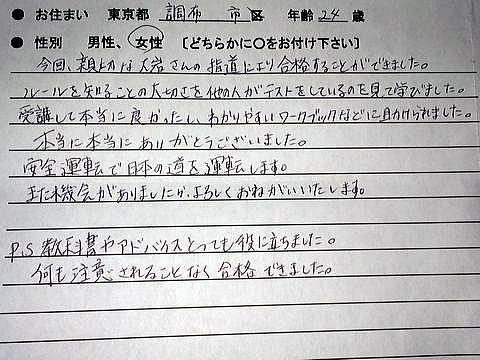 ● お住まい 東京都 調布 市区 年齢 24 歳
● 性別 男性、女性 〔どちらかに○をお付け下さい〕
今回、親切な大岩さんの指導により合格することができました。
ルールを知ることの大切さを他の人がテストをしているのを見て学びました。
受講して本当に良かったし、わかりやすいワークブックなどに助けられました。
本当に本当にありがとうございました。
安全運転で日本の道を運転します。
また機会がありましたら、よろしくおねがいいたします。
P.S 教科書やアドバイスとっても役に立ちました。
何も注意されることなく合格できました。